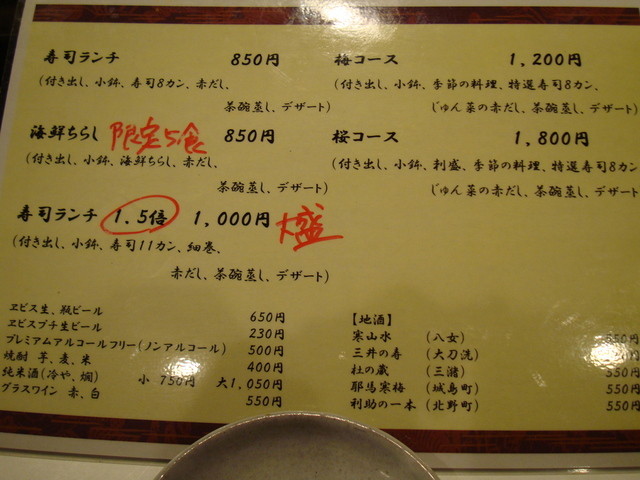 寿司ランチ 850円
(付き出し、小鉢、寿司8カン、赤だし、
茶碗蒸し、デザート)
海鮮ちらし 限定5食 850円
(付き出し、小鉢、海鮮ちらし、赤だし、
茶碗蒸し、デザート)
寿司ランチ 1.5倍 1,000円 大盛
(付き出し、小鉢、寿司11カン、細巻、
赤だし、茶碗蒸し、デザート)
梅コース 1,200円
(付き出し、小鉢、季節の料理、特選寿司8カン、
じゅん菜の赤だし、茶碗蒸し、デザート)
桜コース 1,800円
(付き出し、小鉢、刺盛、季節の料理、特選寿司8カン
じゅん菜の赤だし、茶碗蒸し、デザート)
ヱビス生、瓶ビール 650円
ヱビスプチ生ビール 230円
プレミアムアルコールフリー(ノンアルコール) 500円
焼酎 芋、麦、米 400円
純米酒(冷や、燗) 小 750円 大1,050円
グラスワイン 赤、白 550円
【地酒】
寒山水 (八女) 650円
三井の寿 (大刀洗) 550円
杜の蔵 (三潴) 550円
耶馬寒梅 (城島町) 550円
利助の一本 (北野町) 550円